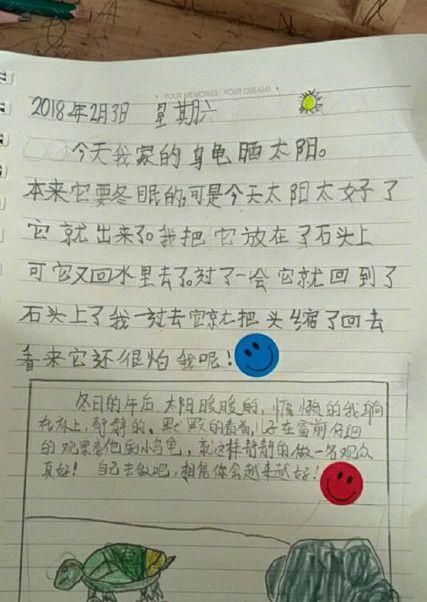 YOUR MEMORIES YOUR DREAMS
2018年2月3日 星期六
今天我家的乌龟晒太阳。
本来它要冬眠的,可是今天太阳太好了
它就出来了。我把它放在了石头上
可它又回水里去了。过了一会它就回到了
石头上了我一过去它就把头缩了回去
看来它还很怕我呢!
冬日的午后,太阳暖暖的,慵懒的我躺
在床上,静静的、默默的看着,儿子在窗前仔细
的观察着他的小乌龟,就这样静静的做一名观众
真好! 自己去做吧,相信你会越来越好!